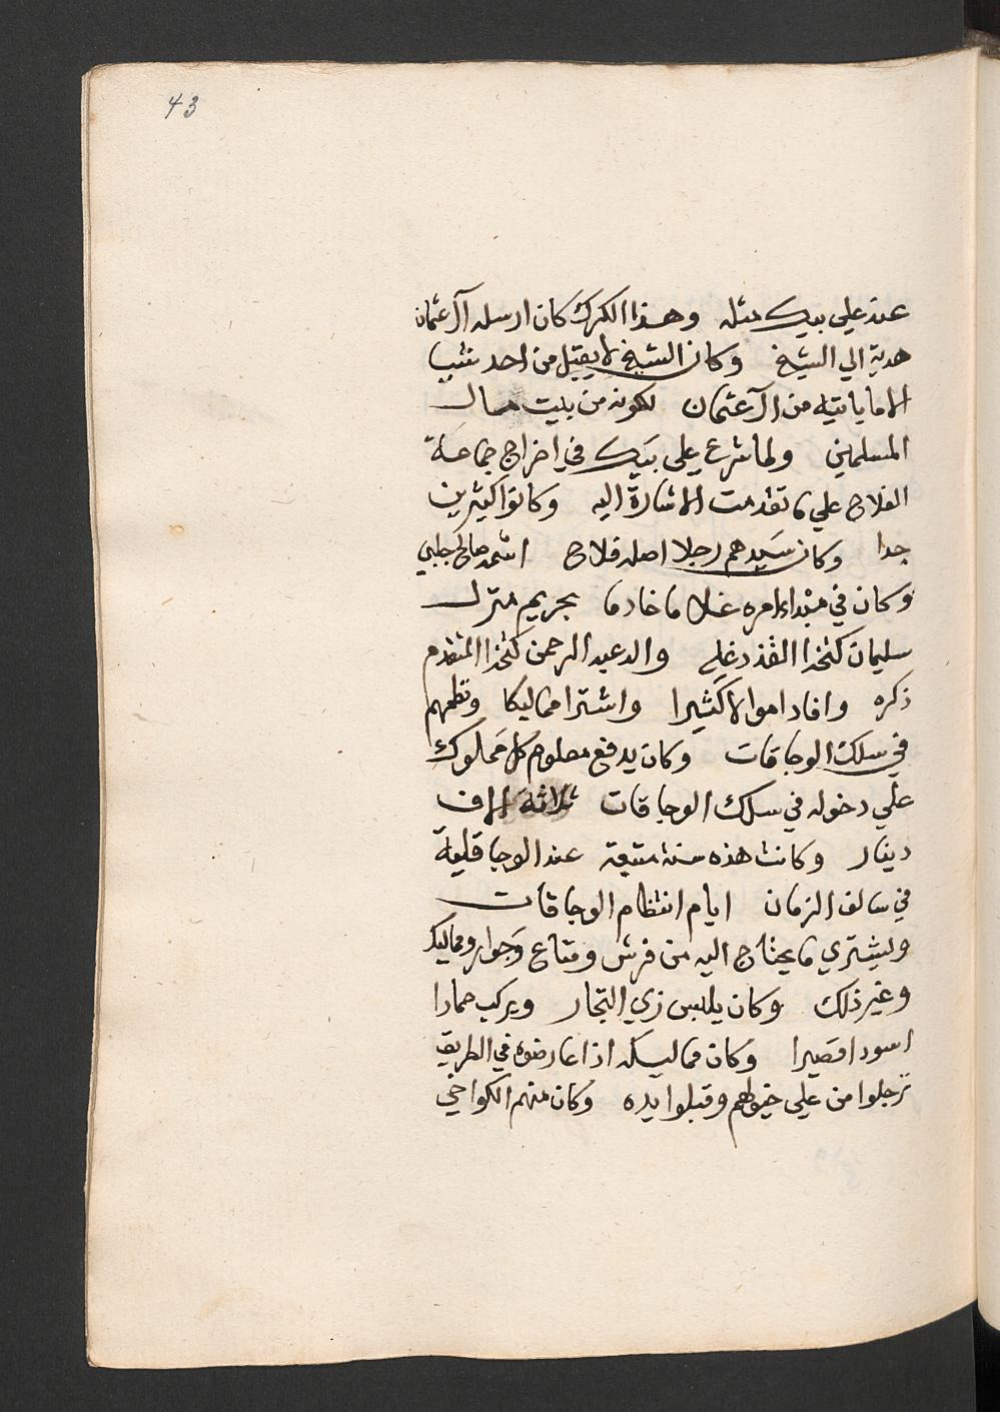 43
عند علي بيك مثله وهذا الكرك كان ارسله آل عثمان
هدية الي الشيخ وكان الشيخ لا يقبل من احد شيا
الا ما ياتيه من آل عثمان لكونه من بيت مال
المسلمين ولما شرع علي بيك في اخراج جماعة
الفلاح علي ما تقدمت الاشارة اليه وكانوا كثيرين
جدا وكان سيدهم رجلا اصله فلاح اسمه صالح جلبي
وكان في مبتداء امره غلاما خادما بحريم منزل
سليمان كتخدا القذدغلي والد عبد الرحمن كتخدا المتقدم
ذكره وافاد اموالا كثيرا واشترا مماليكا ونظمهم
في سلك الوجاقات وكان يدفع معلوم كل مملوك
علي دخوله في سلك الوجاقات ثلاثة الاف
دينار وكانت هذه سنة متبعة عند الوجاقلية
في سالف الزمان ايام انتظام الوجاقات
ويشتري ما يحتاج اليه من فرش ومتاع وجوار ومماليك
وغير ذلك وكان يلبس زي التجار ويركب حمارا
اسودا قصيرا وكان مماليكه اذا عارضوه في الطريق
ترجلوا من علي خيولهم وقبلوا يده وكان منهم الكواخي